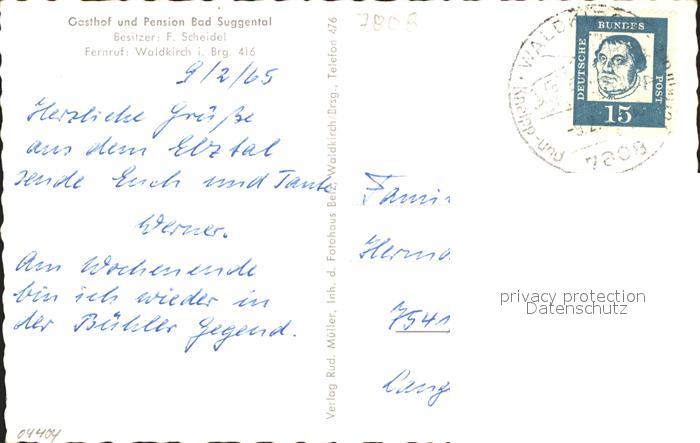 Gasthof und Pension Bad Suggental
Besitzer: F. Scheidel
Fernruf: Waldkirch i. Brg. 416
9/2/65
Herzliche Grüße
aus dem Elztal
sende Euch und Tante
Werner.
Am Wochenende
bin ich wieder in
der Bühler Gegend.
04404
Verlag Rud. Müller, Inh. d. Fotohaus Betz, Waldkirch Brsg., Telefon 476
7808
DEUTSCHE BUNDES POST
15
WALDKIRCH
7808
Famil
Herma
7541
Lang
privacy protection
Datenschutz